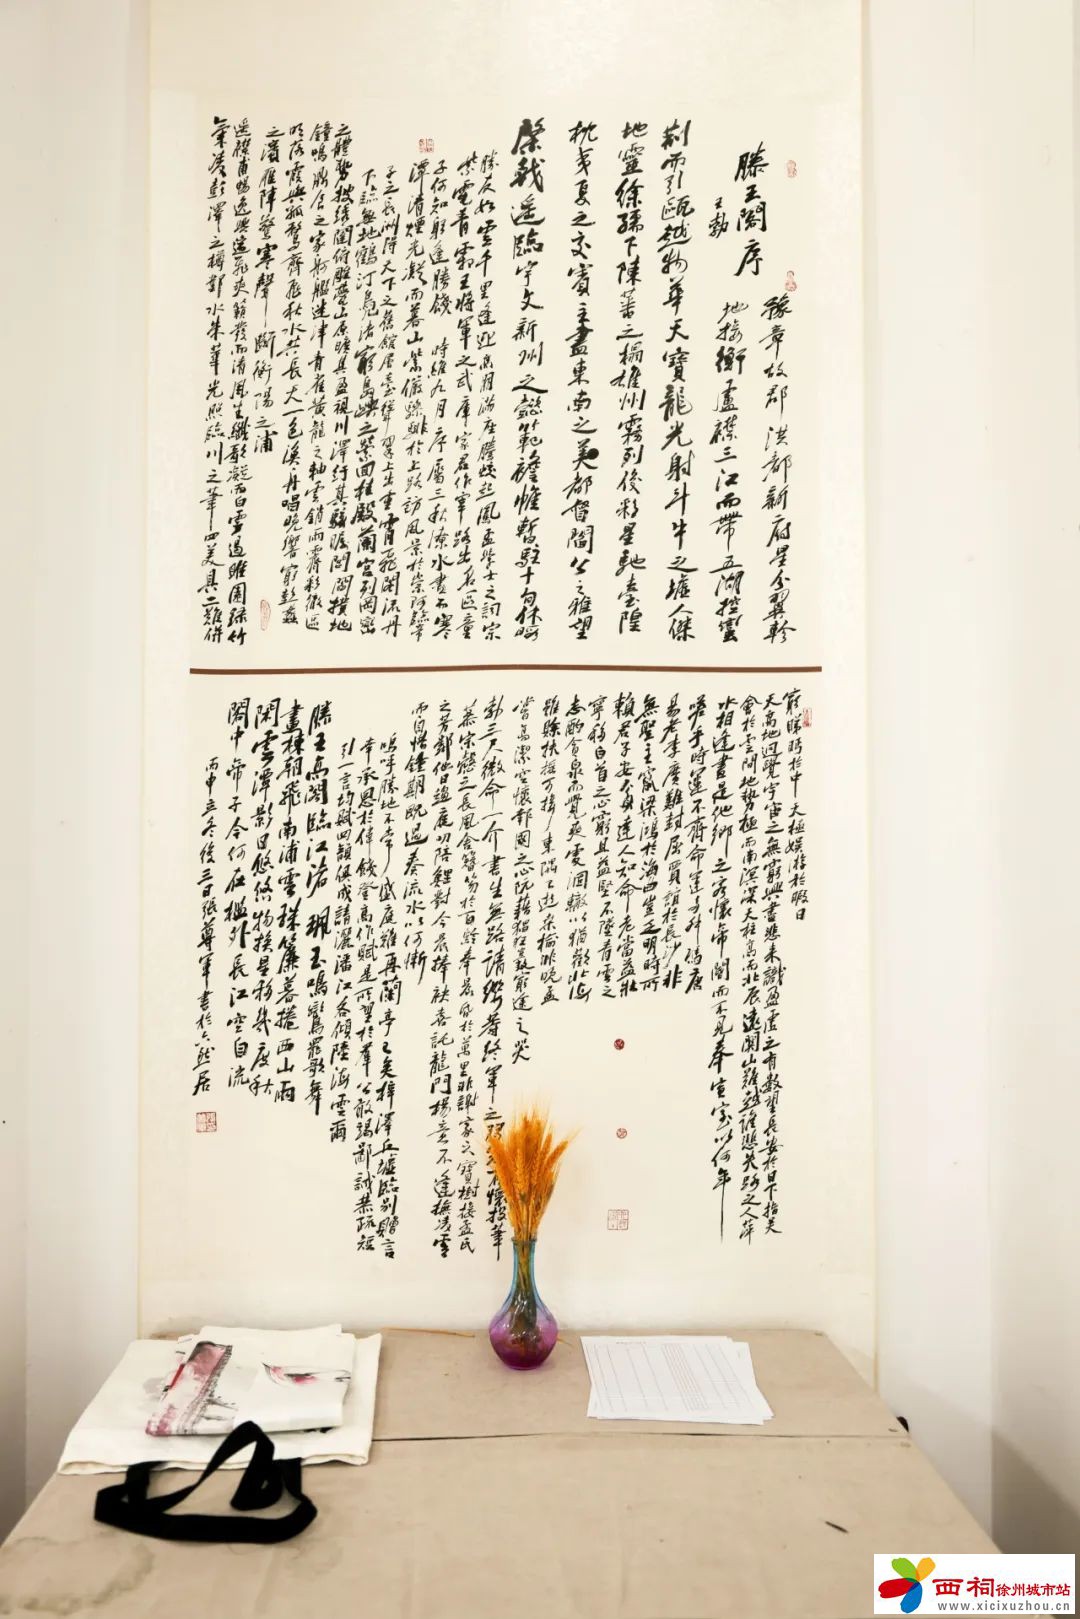 滕王閣序
王勃
豫章故郡洪都新府星分翼軫
地接衡廬襟三江而帶五湖控蠻
荊而引甌越物華天寶龍光射斗牛之墟人傑
地靈徐孺下陳蕃之榻雄州霧列俊彩星馳臺隍
枕夷夏之交賓主盡東南之美都督閻公之雅望
棨戟遙臨宇文新州之懿範襜帷暫駐十旬休暇
勝友如雲千里逢迎高朋滿座騰蛟起鳳孟學士之詞宗
紫電青霜王將軍之武庫家君作宰路出名區童
子何知躬逢勝餞時維九月序屬三秋潦水盡而寒
潭清煙光凝而暮山紫儼驂騑於上路訪風景於崇阿臨帝
子之長洲得天下之舊館層臺聳翠上出重霄飛閣流丹
下臨無地鶴汀鳧渚窮島嶼之縈回桂殿蘭宮列岡巒
之體勢披綉闥俯雕甍山原曠其盈視川澤紆其駭矚閭閻撲地
鐘鳴鼎食之家舸艦迷津青雀黃龍之軸雲銷雨霽彩徹區
明落霞與孤鶩齊飛秋水共長天一色漁舟唱晚響窮彭蠡
之濱雁陣驚寒聲斷衡陽之浦
遙襟甫暢逸興遄飛爽籟發而清風生纖歌凝而白雲遏睢園綠竹
氣凌彭澤之樽鄴水朱華光照臨川之筆四美具二難併
窮睇眄於中天極娛遊於暇日
天高地迥覺宇宙之無窮興盡悲來識盈虛之有數望長安於日下指吳
會於雲間地勢極而南溟深天柱高而北辰遠關山難越誰悲失路之人萍
水相逢盡是他鄉之客懷帝閽而不見奉宣室以何年
嗟乎時運不齊命運多舛馮唐
易老李廣難封屈賈誼於長沙非
無聖主竄梁鴻於海曲豈乏明時所
賴君子安貧達人知命老當益壯
寧移白首之心窮且益堅不墜青雲之
志酌貪泉而覺爽處涸轍以猶歡北海
雖賒扶搖可接東隅已逝桑榆非晚孟
嘗高潔空懷報國之心阮籍猖狂豈效窮途之哭
勃三尺微命一介書生無路請纓等終軍之懷投筆
慕宗慤之長風舍簪笏於百齡奉晨昏於萬里非謝家之寶樹接孟氏
之芳鄰他日趨庭叨陪鯉對今晨捧袂喜託龍門楊意不逢撫凌雲
而自惜鍾期既遇奏流水以何慚
嗚呼勝地不常盛庭難再蘭亭已矣梓澤丘墟臨別贈言
幸承恩於偉餞登高作賦是所望於群公敢竭鄙誠恭疏短
引一言均賦四韻俱成請灑潘江各傾陸海雲爾
滕王高閣臨江渚珮玉鳴鸞罷歌舞
畫棟朝飛南浦雲珠簾暮捲西山雨
閑雲潭影日悠悠物換星移幾度秋
閣中帝子今何在檻外長江空自流
丙申立冬後三日張尊軍書於六然居
西祠徐州城市站
www.xicixuzhou.cn